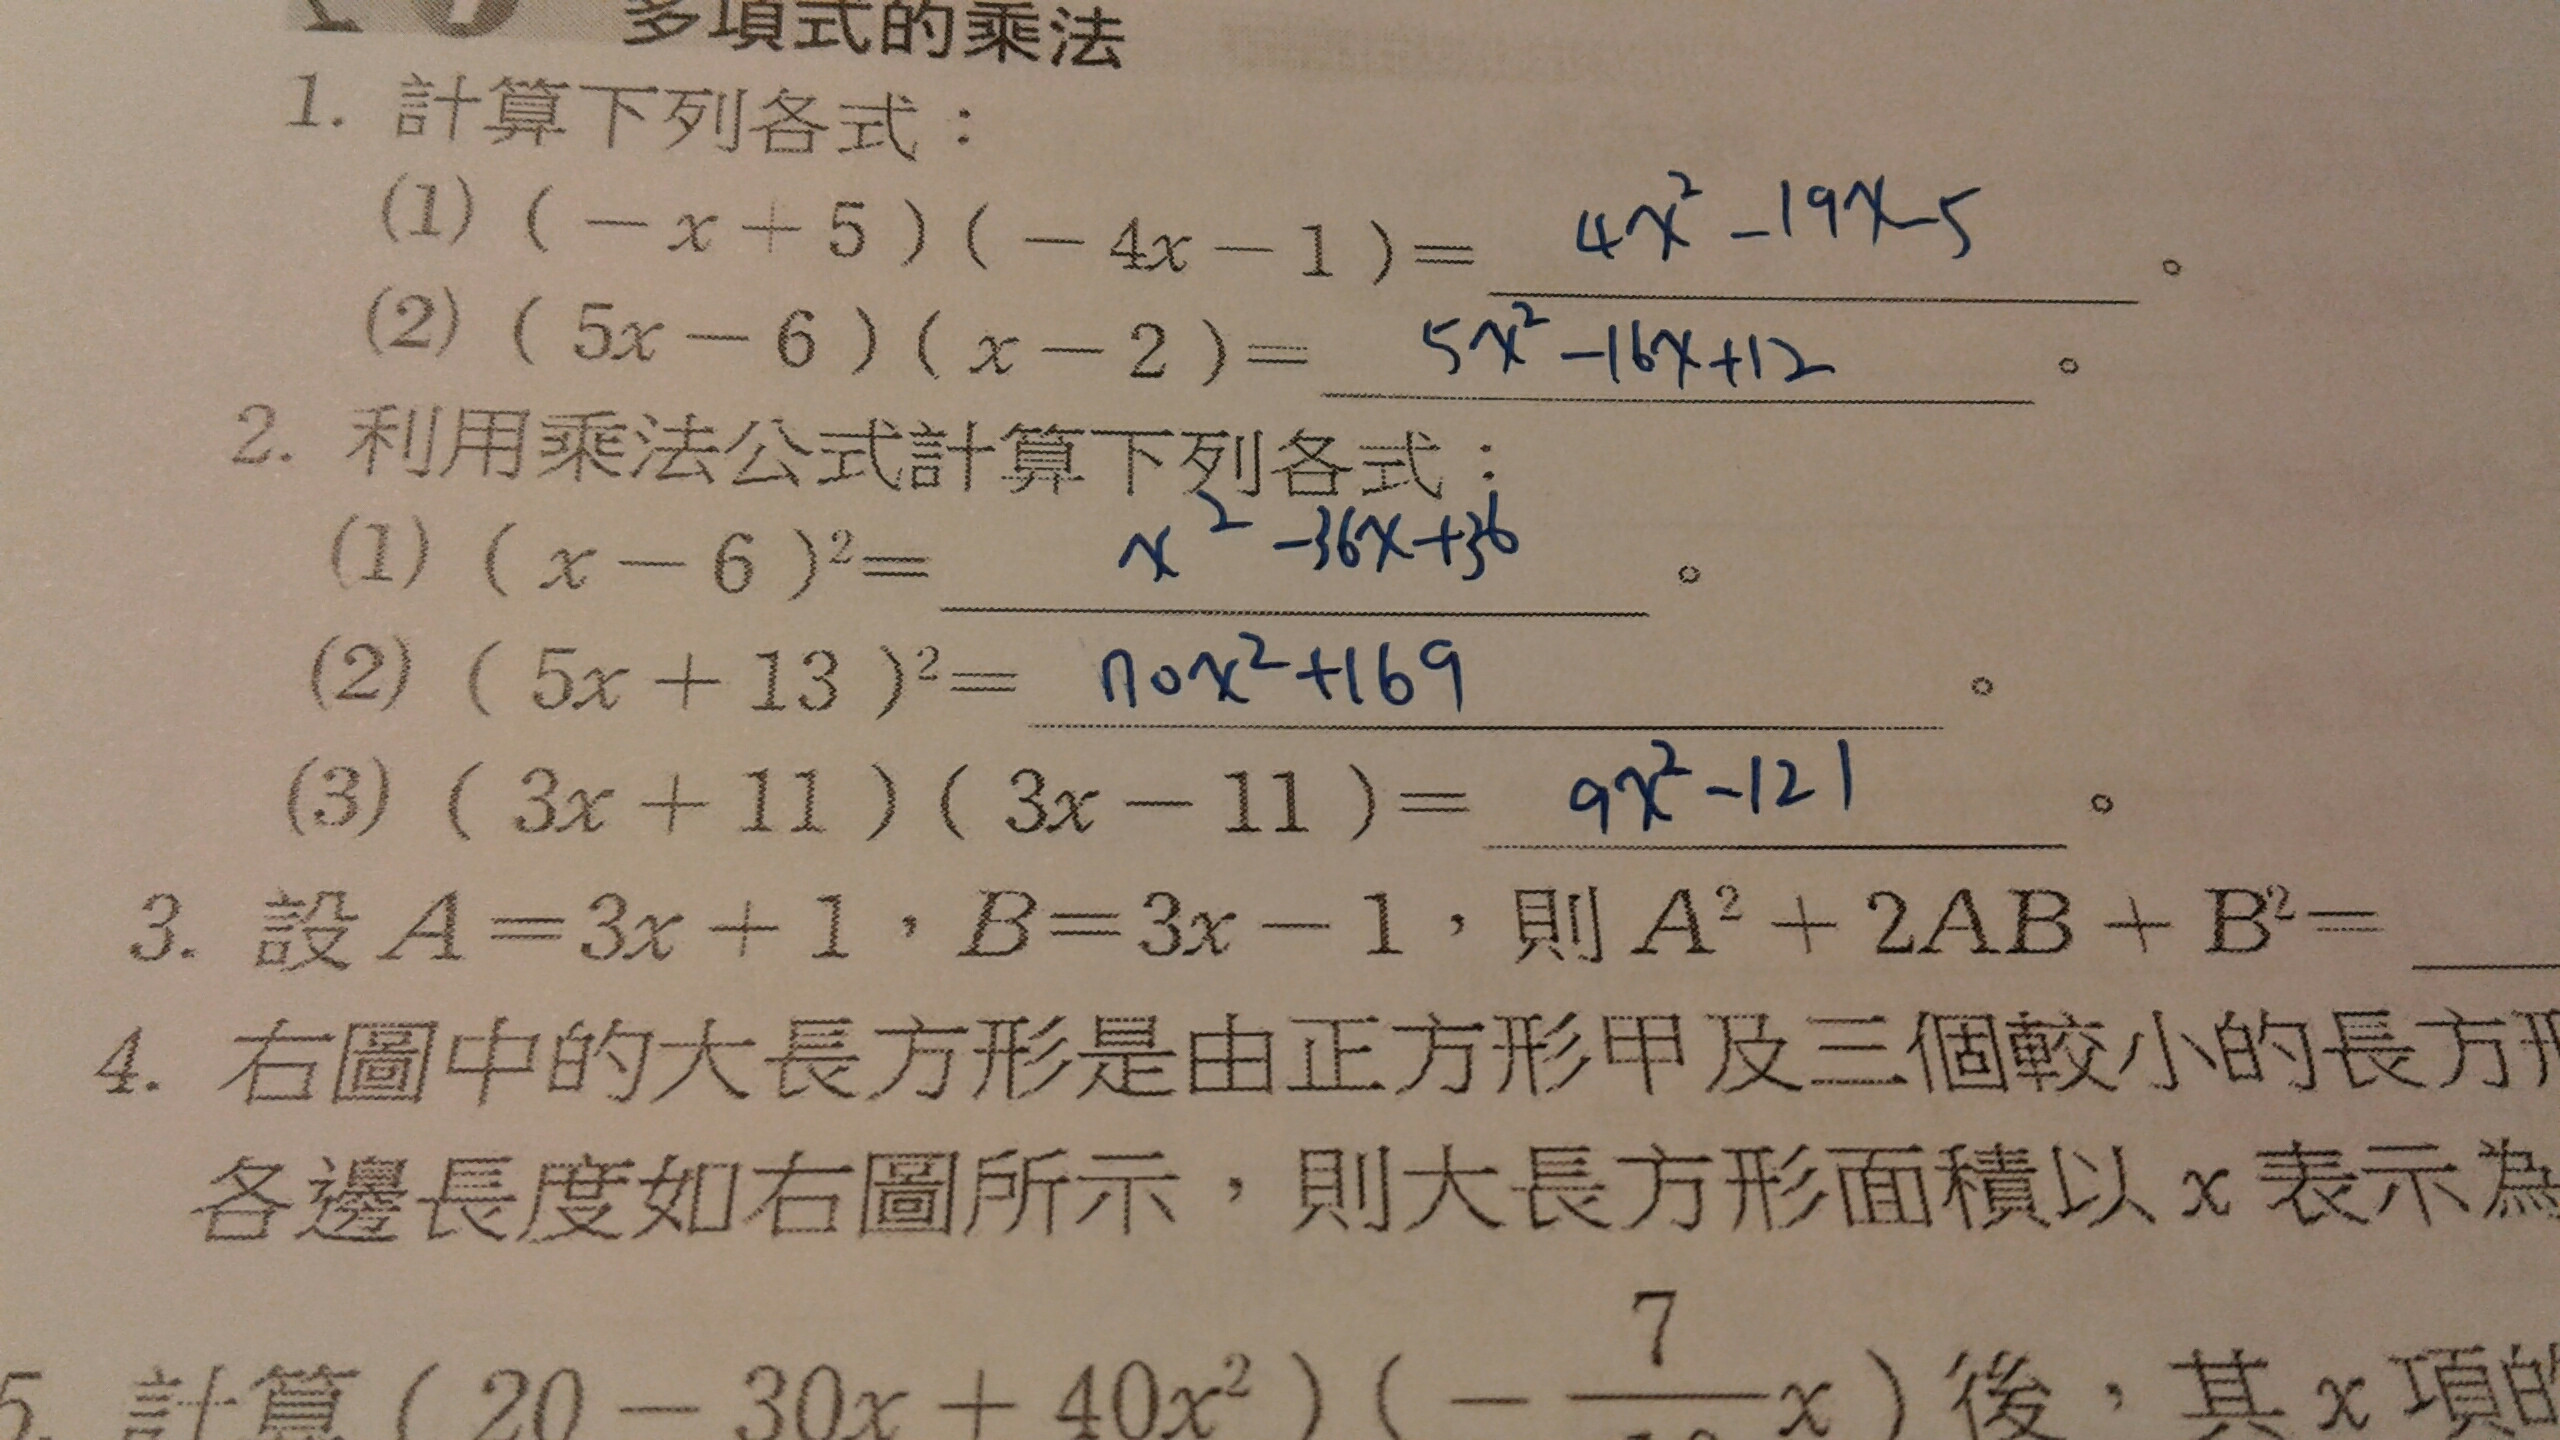 多項式的乘法
1. 計算下列各式：
(1) ( －x＋5 ) ( －4x－1 )＝ 4x²－19x－5 。
(2) ( 5x－6 ) ( x－2 )＝ 5x²－16x＋12 。
2. 利用乘法公式計算下列各式：
(1) ( x－6 )²＝ x²－36x＋36 。
(2) ( 5x＋13 )²＝ 170x²＋169 。
(3) ( 3x＋11 ) ( 3x－11 )＝ 9x²－121 。
3. 設 A＝3x＋1，B＝3x－1，則 A²＋2AB＋B²＝
4. 右圖中的大長方形是由正方形甲及三個較小的長方形
各邊長度如右圖所示，則大長方形面積以 x 表示為
5. 計算 ( 20－30x＋40x² ) ( －7/ x ) 後，其 x 項的